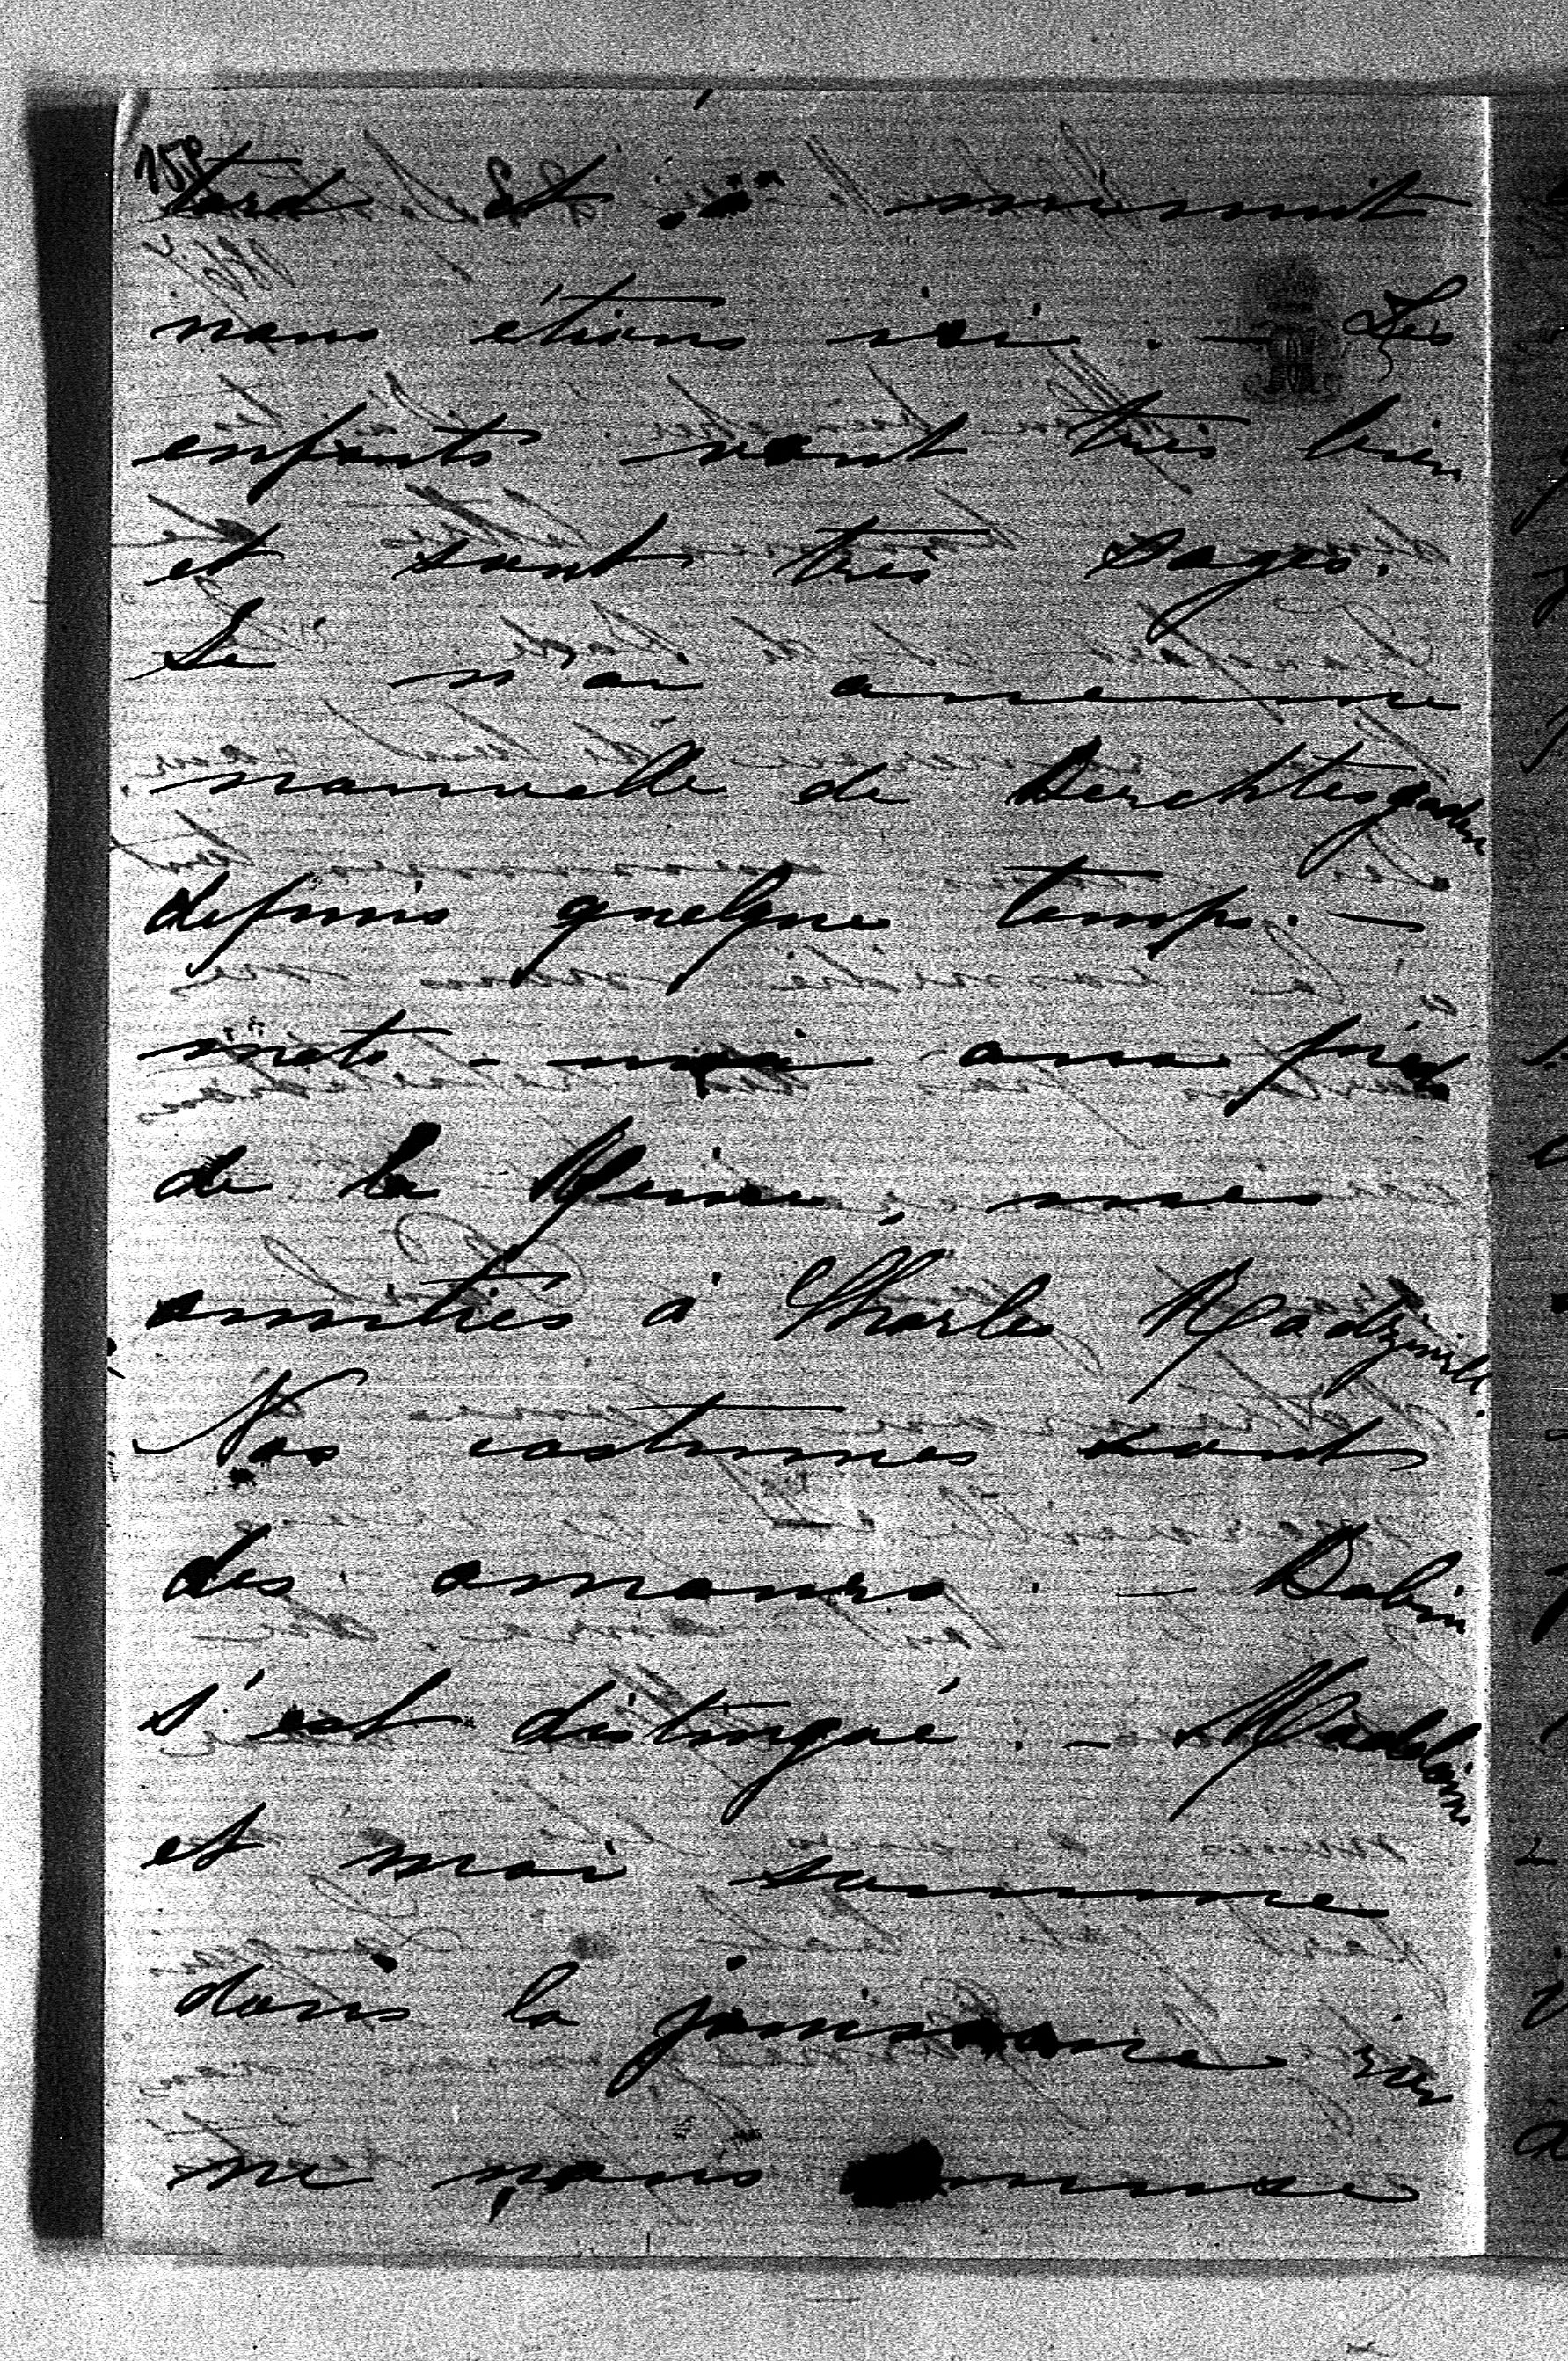 tard Et à minuit
nous étions ici. — Les
enfants vont très bien
et sont très sages.
Je n'ai aucune
nouvelle de Berchtesgaden
depuis quelque temps. —
mets-moi aux pieds
de la Reine, mes
amitiés à Charles Radziwill.
Nos costumes sont
des amours. — Dobin
s'est distingué. — Madeleine
et moi sommes
dans la jouissance
ne nous amuse